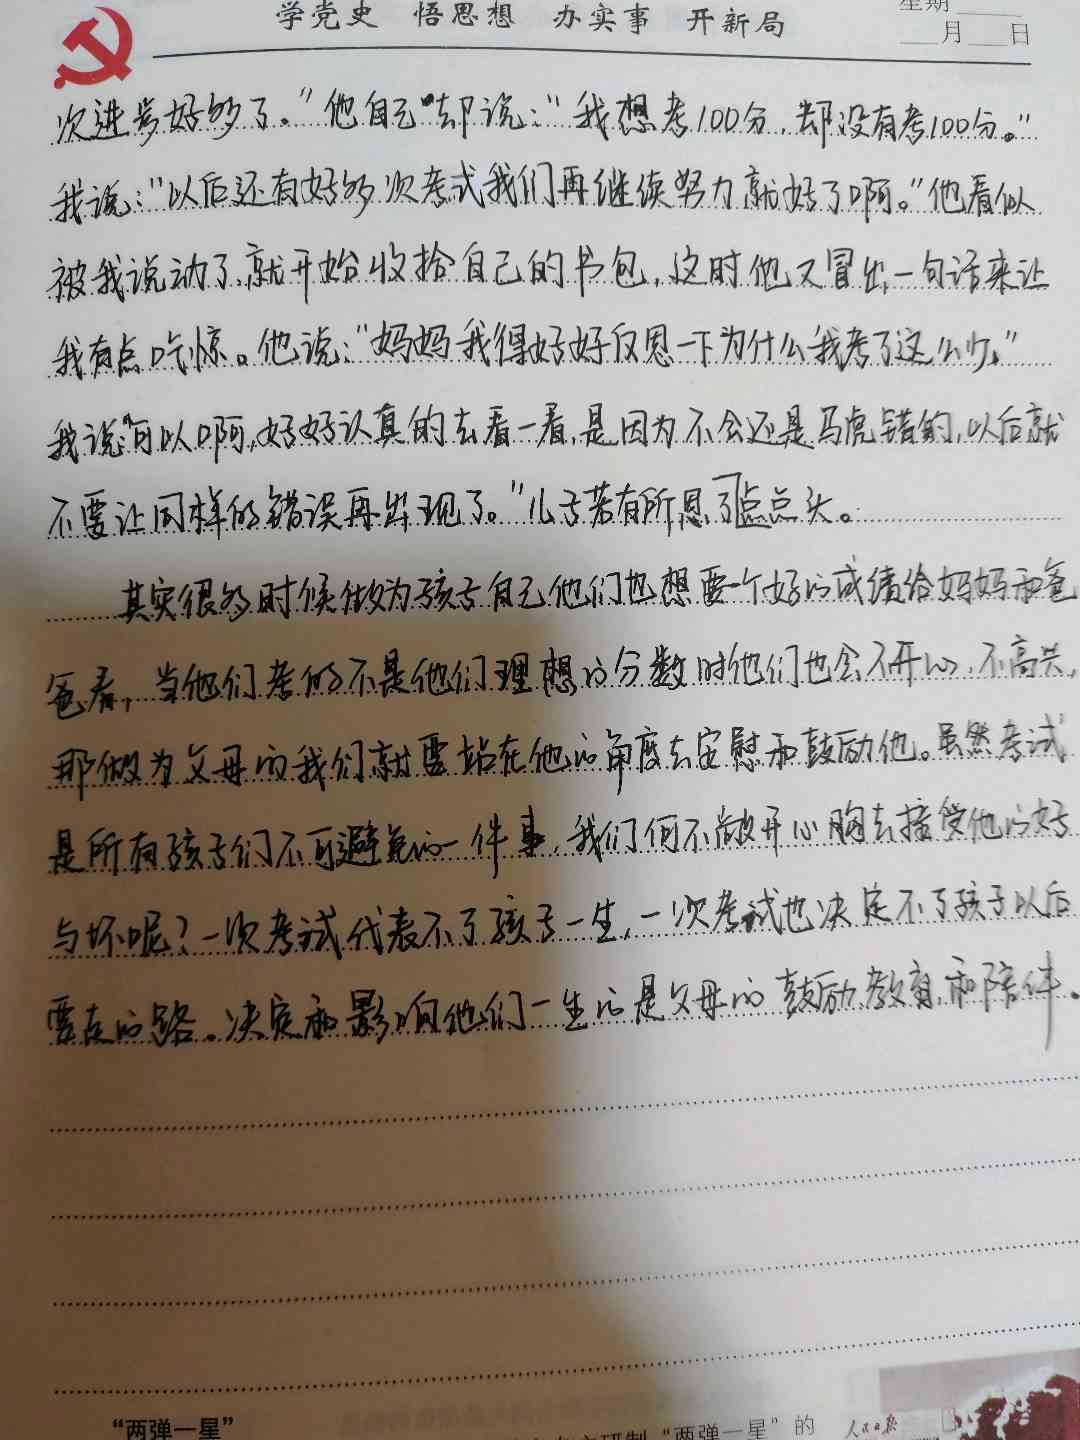 学党史 悟思想 办实事 开新局
星期
月 日
次进步好多了。"他自己却说:"我想考100分,却没有考100分。"
我说:"以后还有好多次考试我们再继续努力就好了啊。"他看似
被我说动了,就开始收拾自己的书包,这时他又冒出一句话来让
我有点吃惊。他说:"妈妈我得好好反思一下为什么我考了这么少。"
我说:"可以啊,好好认真的去看一看,是因为不会还是马虎错的,以后就
不要让同样的错误再出现了。"儿子若有所思了点点头。
其实很多时候做为孩子自己他们也想要一个好的成绩给妈妈和爸
爸看,当他们考的不是他们理想的分数时他们也会不开心,不高兴,
那做为父母的我们就要站在他的角度去安慰和鼓励他。虽然考试
是所有孩子们不可避免的一件事,我们何不敞开心胸去接受他的好
与坏呢?一次考试代表不了孩子一生,一次考试也决定不了孩子以后
要走的路。决定和影响他们一生的是父母的鼓励,教育,和陪伴。
"两弹一星"
研制"两弹一星"的
人民日报